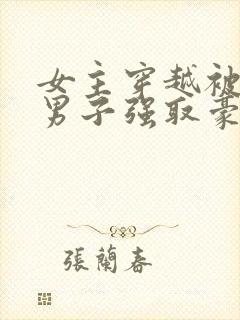 女主穿越被
男子强取豪
張蘭春